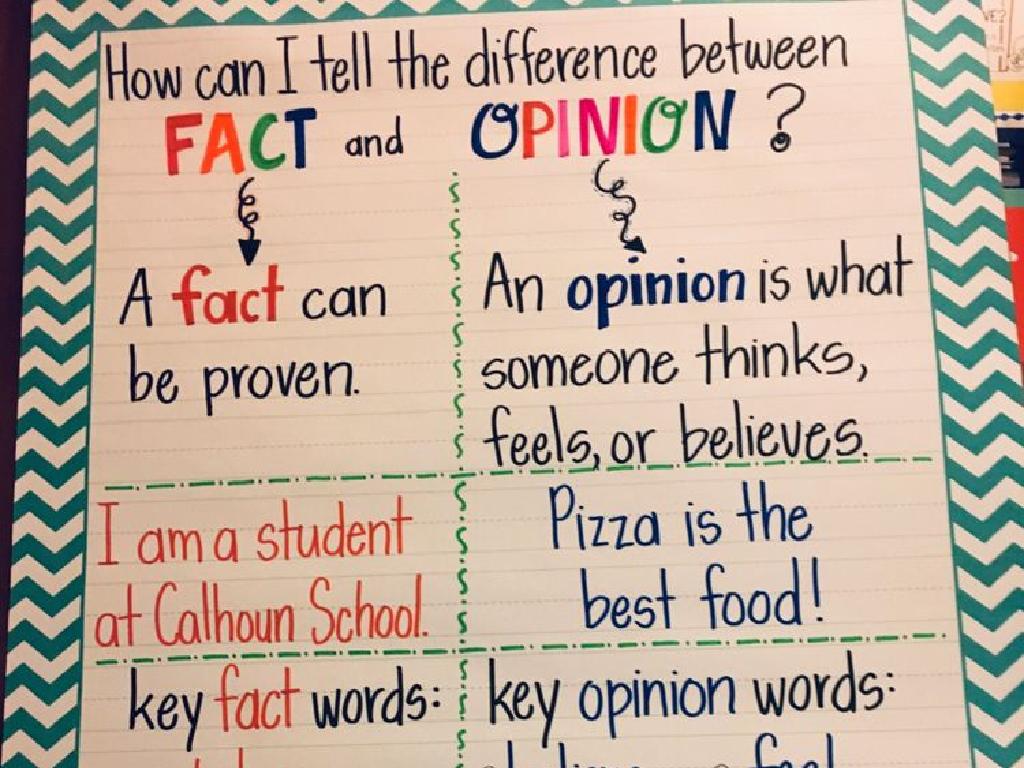 How can I tell the difference between
FACT and OPINION?
A fact can
be proven.
An opinion is what
someone thinks,
feels, or believes.
I am a student
at Calhoun School.
Pizza is the
best food!
key fact words:
key opinion words:
feel